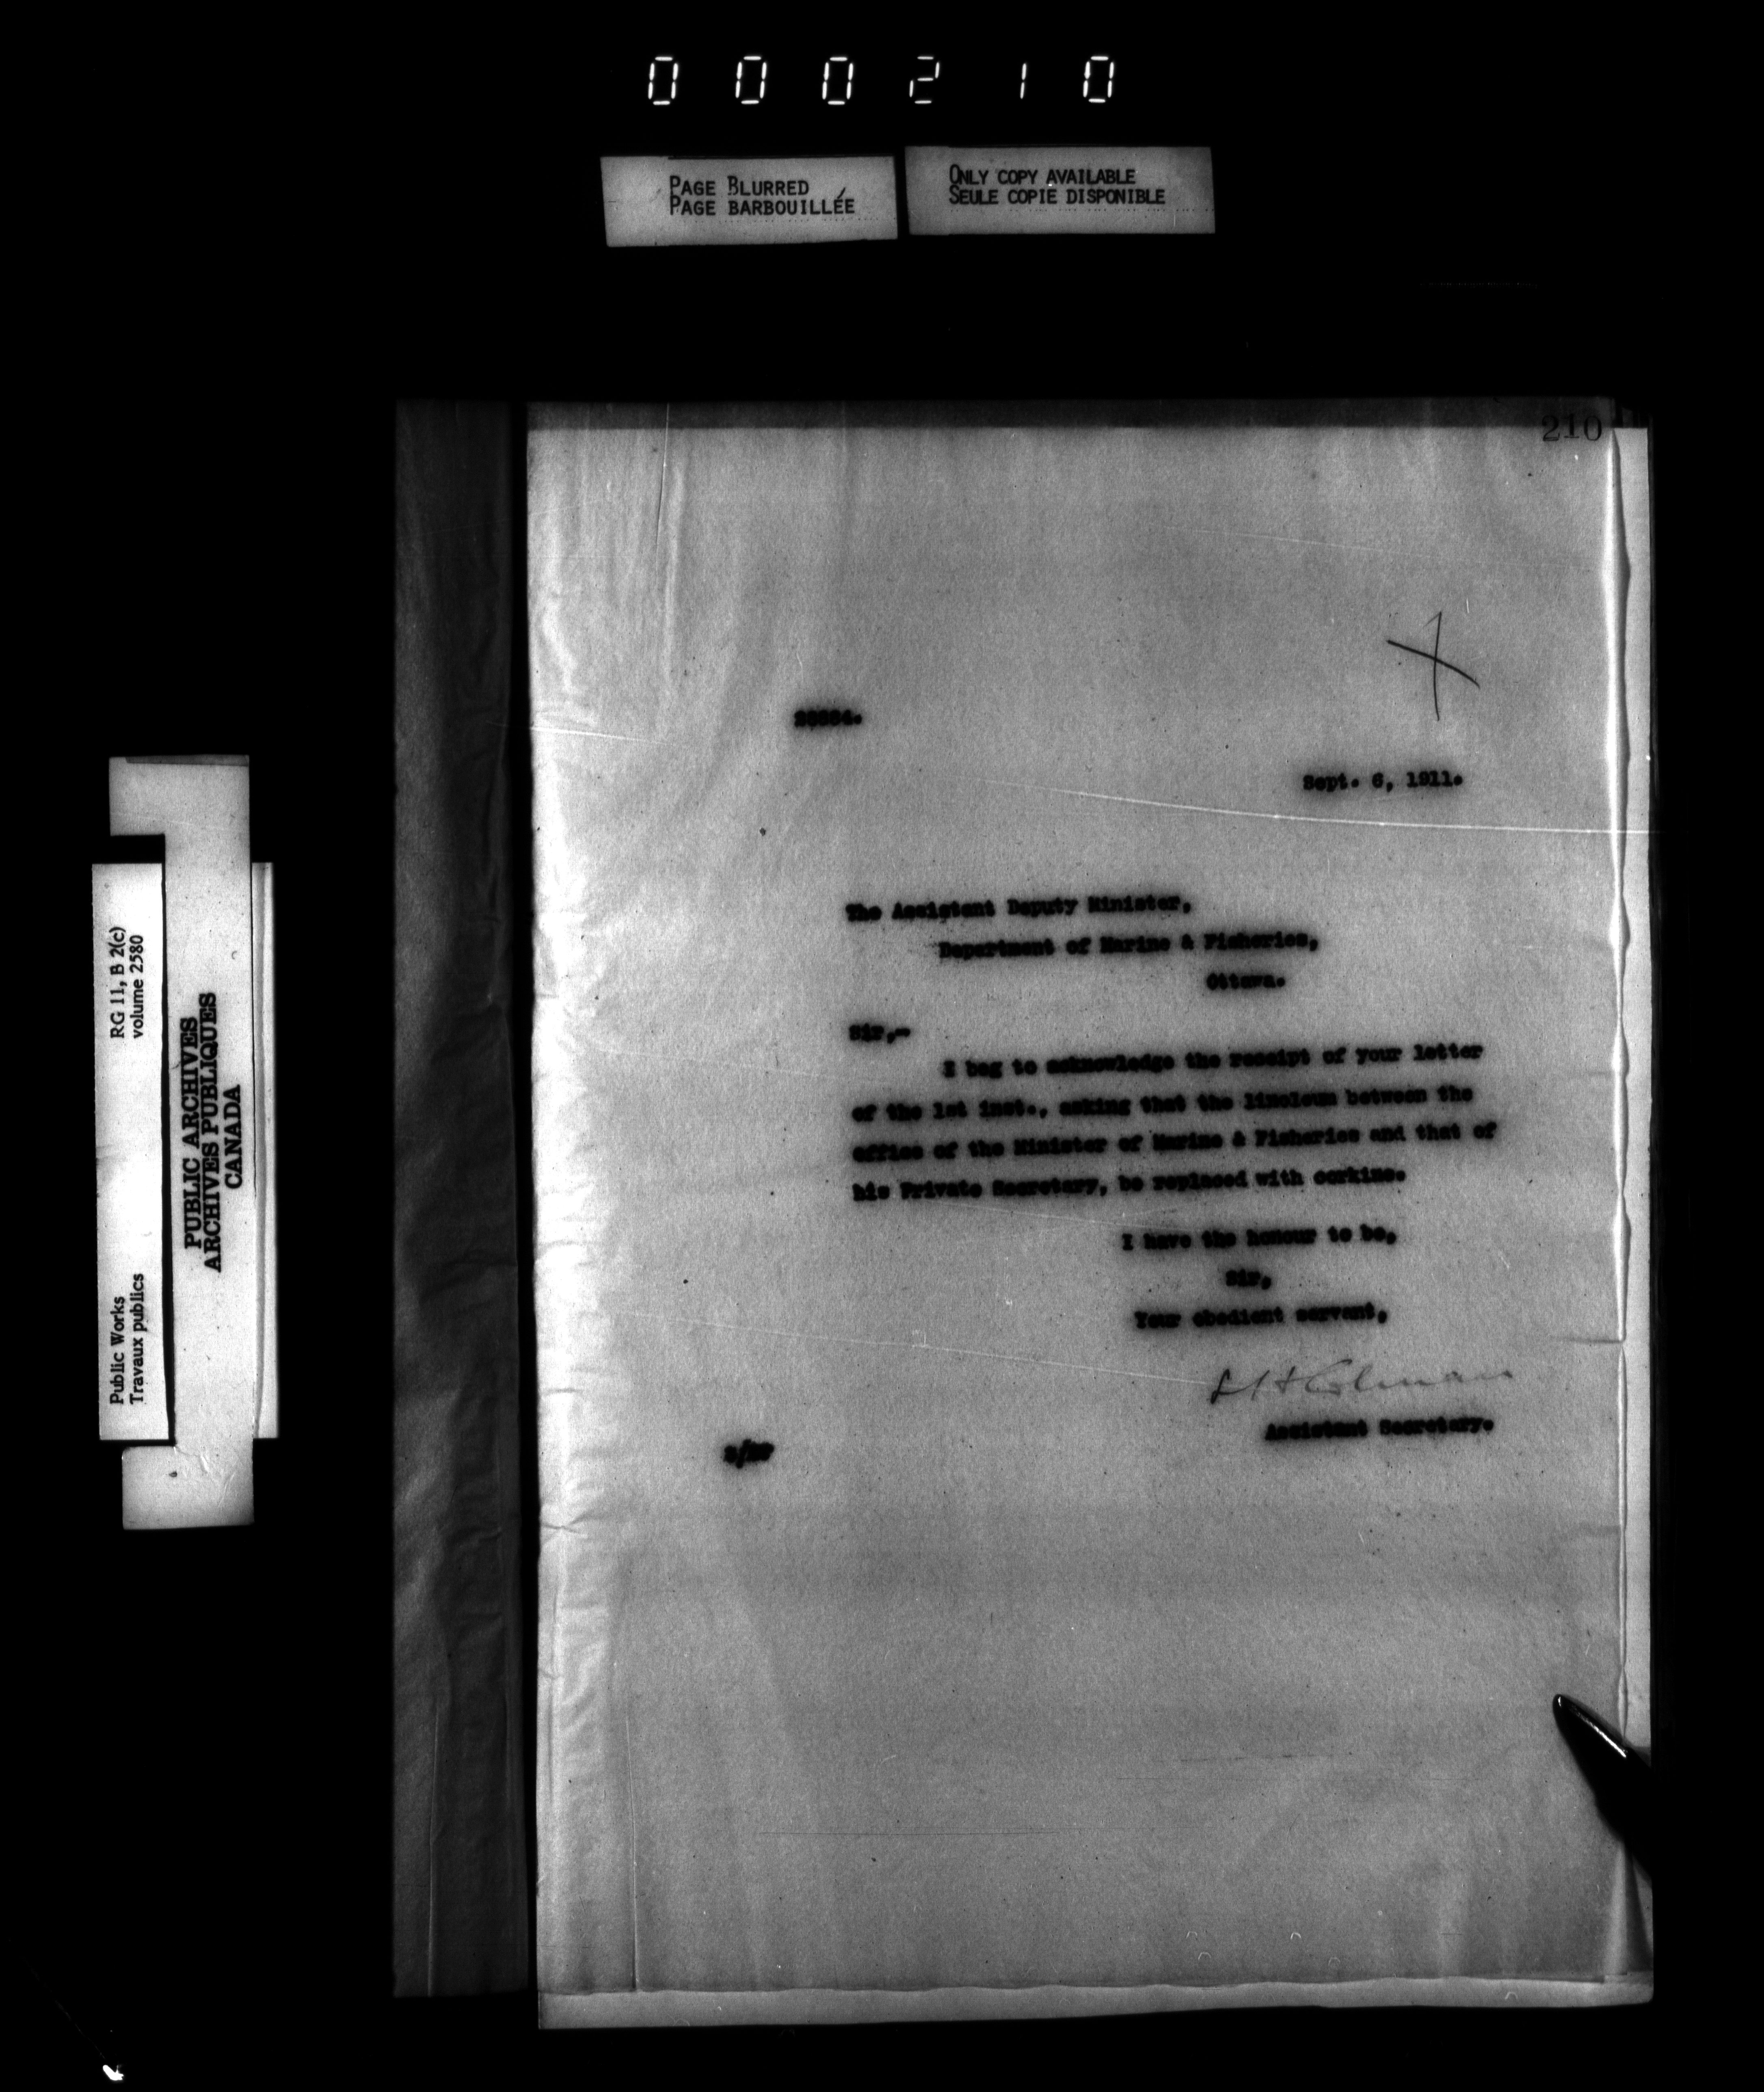 000210
PAGE BLURRED
PAGE BARBOUILLÉE
ONLY COPY AVAILABLE
SEULE COPIE DISPONIBLE
210
Sept. 6, 1911.
The Assistant Deputy Minister,
Department of Marine & Fisheries,
Ottawa.
Sir,-
I beg to acknowledge the receipt of your letter
of the 1st inst., asking that the linoleum between the
office of the Minister of Marine & Fisheries and that of
his Private Secretary, be replaced with corkine.
I have the honour to be,
Sir,
Your obedient servant,
Assistant Secretary.
RG 11, B 2(c)
volume 2580
Public Works
Travaux publics
PUBLIC ARCHIVES
ARCHIVES PUBLIQUES
CANADA